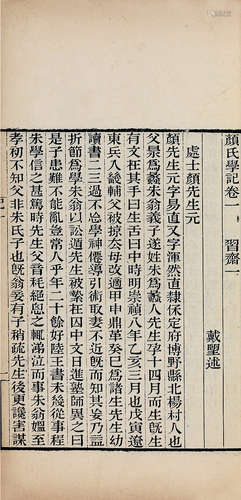 顔氏學記卷一　習齋一
戴望述
處士顔先生元
顔先生元字易直又字渾然直隸保定府博野縣北楊村人也
父㫤爲蠡朱翁義子遂姓朱爲蠡人先生孕十四月而生旣生
有文在其手曰生舌曰中時明崇禎八年乙亥三月也戊寅遼
東兵入畿輔父被掠去母改適甲申鼎革癸巳爲諸生先生幼
讀書二三過不忘學神僊導引術取妻不近旣而知其妄乃益
折節爲學朱翁以訟遁先生被繫在囚中文日進塾師異之曰
是子患難不能亂豈常人乎年二十餘好陸王書未幾從事程
朱學信之甚篤時先生父音耗絕思之輒涕泣而事朱翁媼至
孝初不知父非朱氏子也旣翁妾有子稍疏先生後更讒害謀